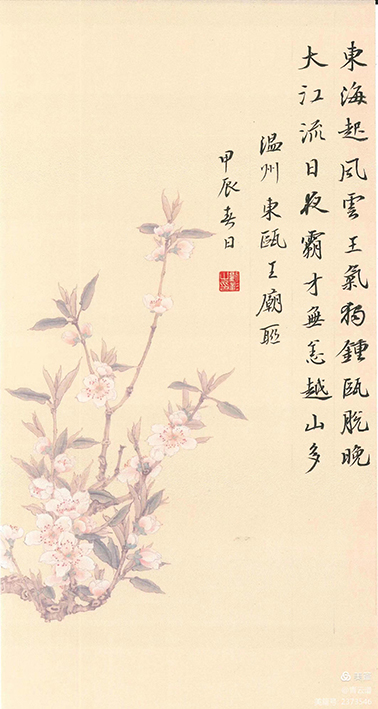 東海起風雲王氣獨鍾甌脫晚
大江流日夜霸才無恙越山多
温州東甌王廟联
甲辰春日